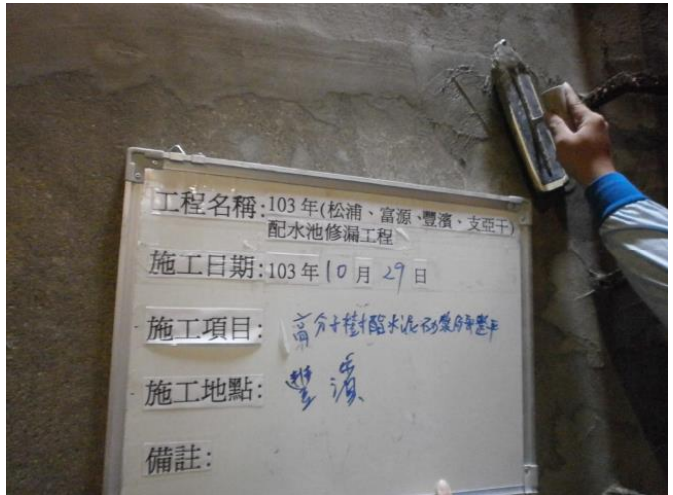 工程名稱:103年(松浦、富源、豐濱、支亞干)
配水池修漏工程
施工日期:103年10月29日
施工項目: 高分子樹酯水泥砂漿
施工地點: 豐濱
備註: